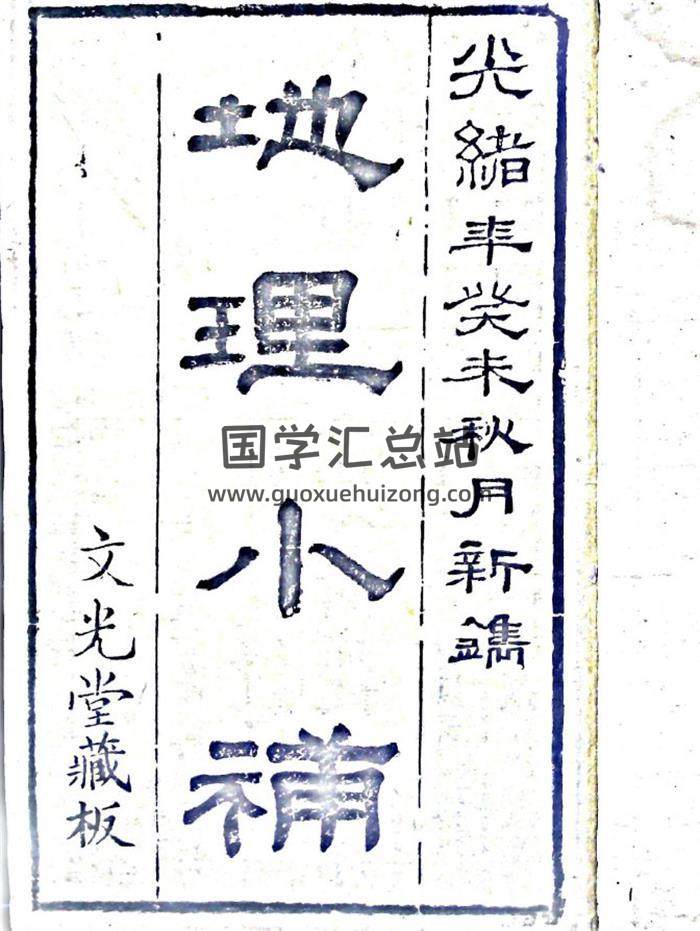 光緒年癸未秋月新鐫
地理小補
文光堂藏板
国学汇总站
www.guoxuehuizong.com